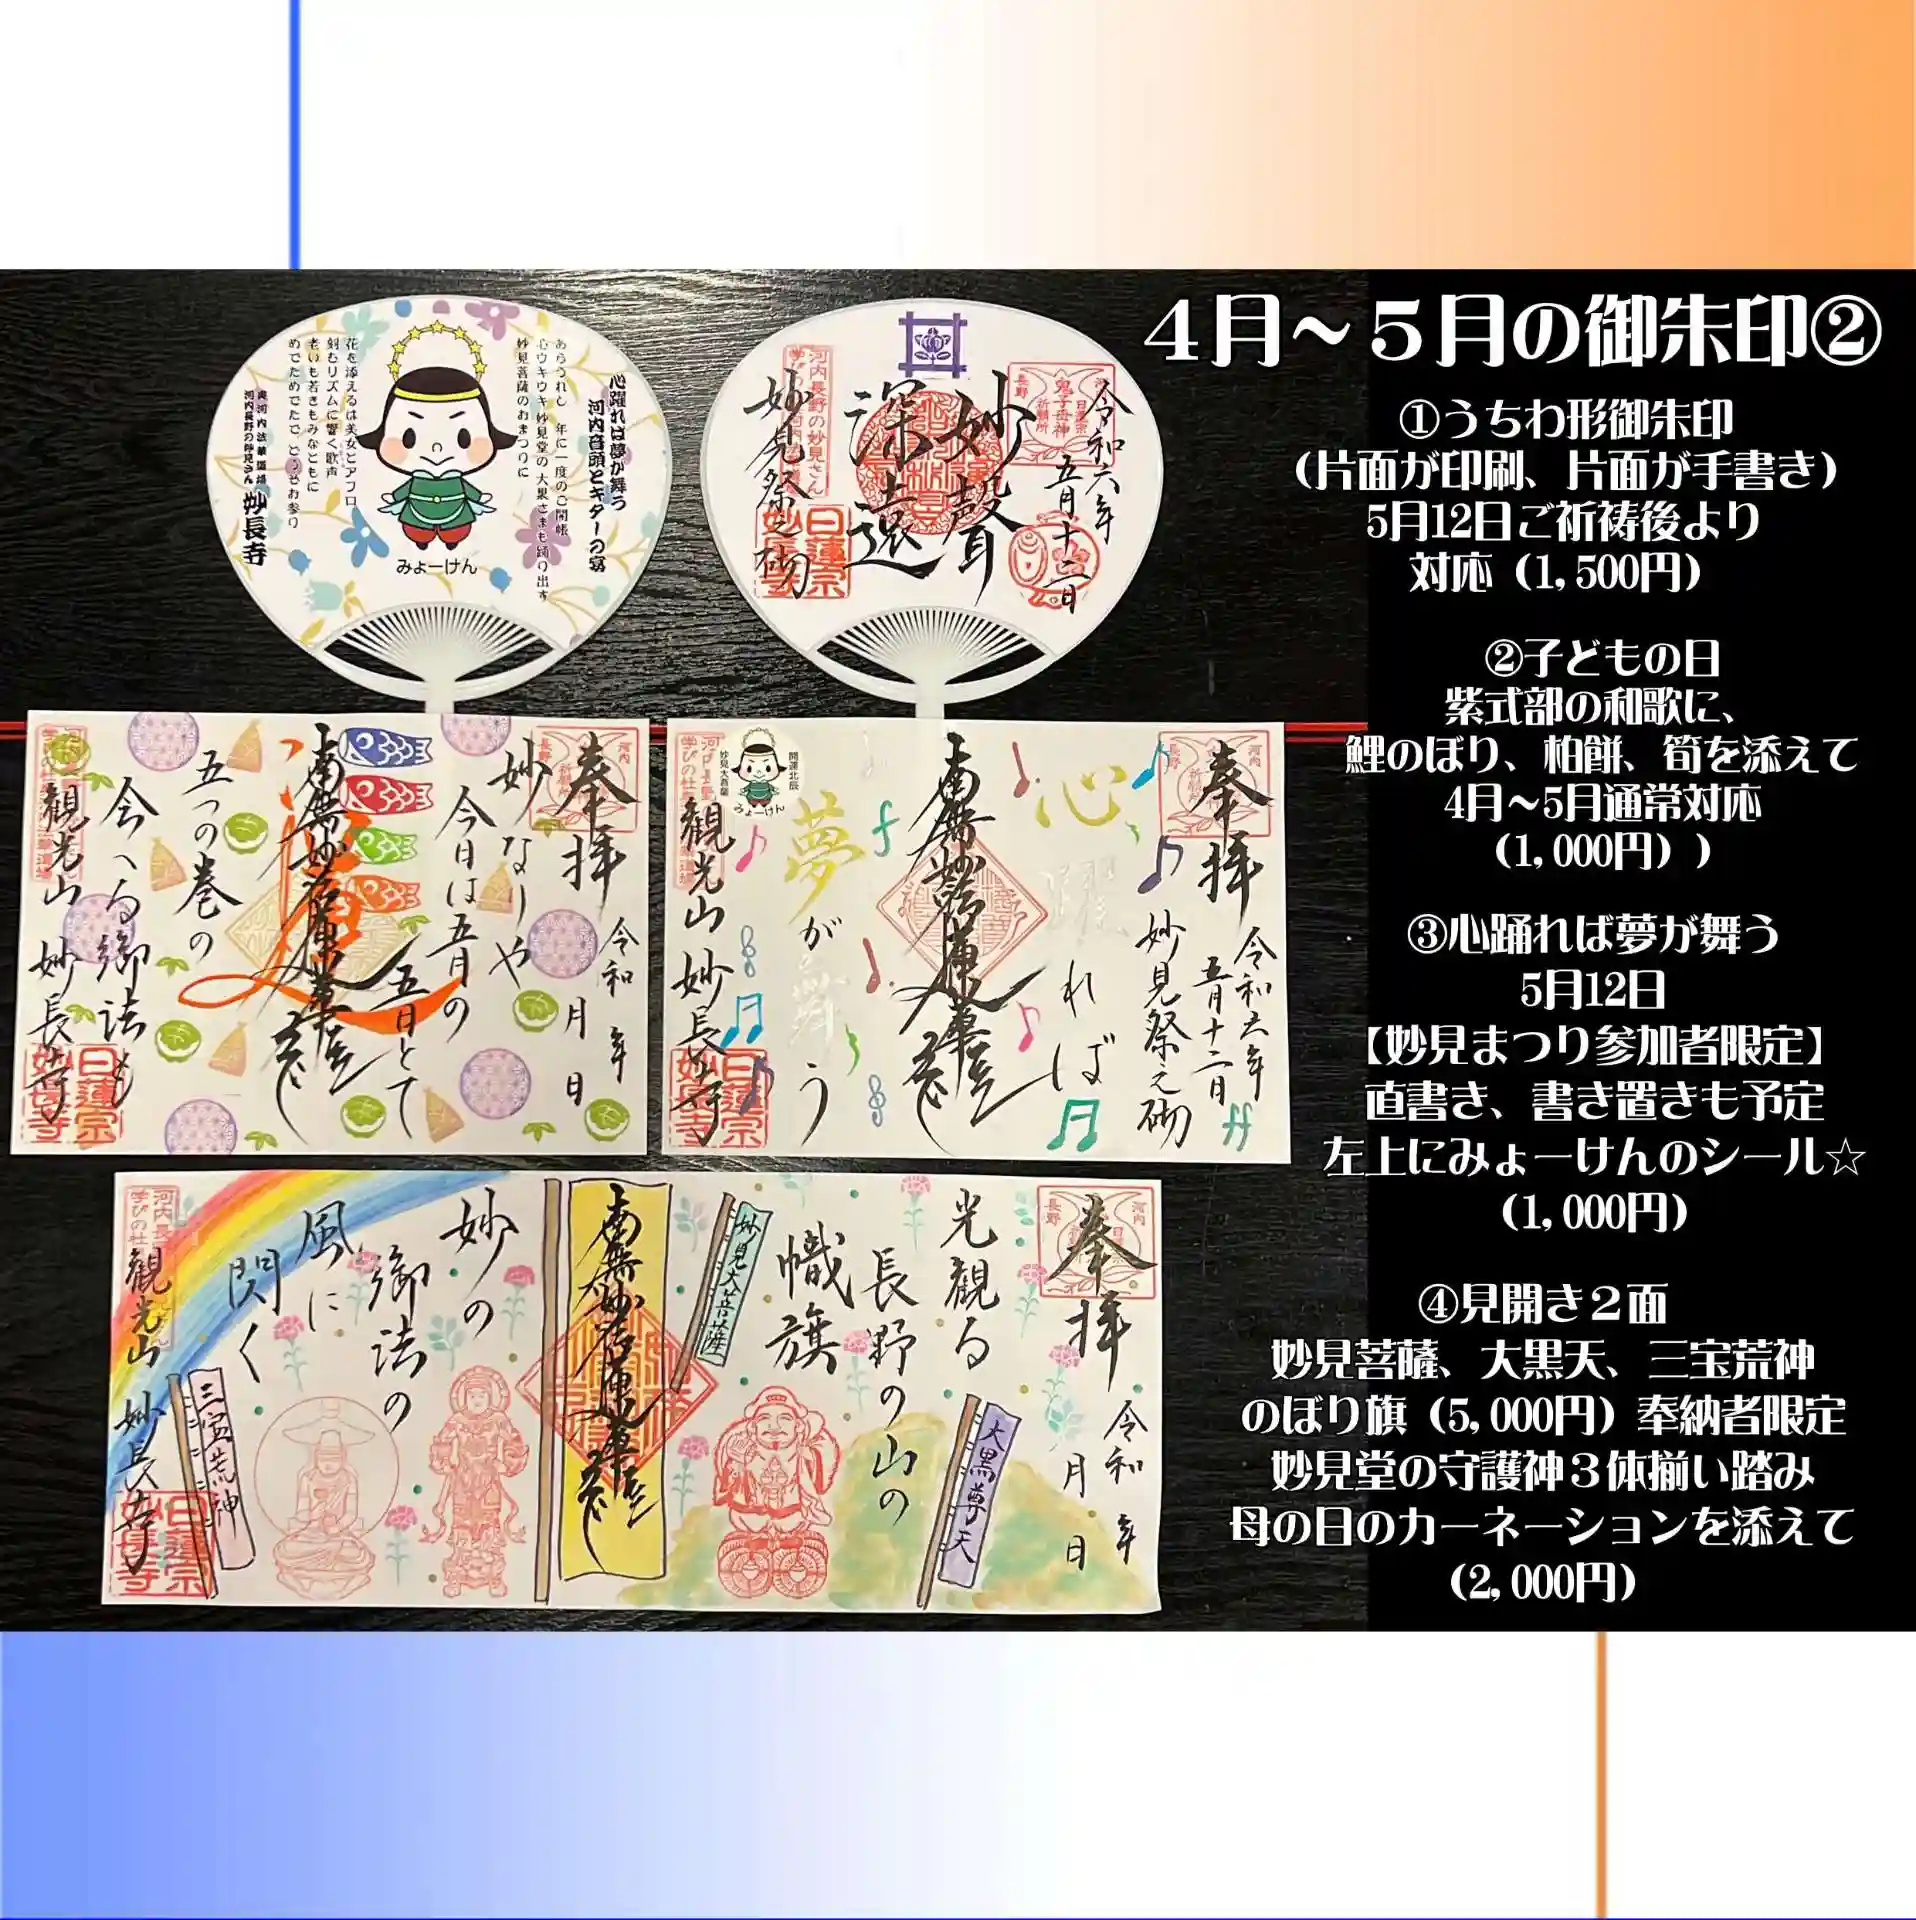 4月～5月の御朱印②
①うちわ形御朱印
（片面が印刷、片面が手書き）
5月12日ご祈祷後より
対応（1,500円）
②子どもの日
紫式部の和歌に、
鯉のぼり、柏餅、筍を添えて
4月～5月通常対応
（1,000円））
③心踊れば夢が舞う
5月12日
【妙見まつり参加者限定】
直書き、書き置きも予定
左上にみょーけんのシール☆
（1,000円）
④見開き２面
妙見菩薩、大黒天、三宝荒神
のぼり旗（5,000円）奉納者限定
妙見堂の守護神３体揃い踏み
母の日のカーネーションを添えて
（2,000円）
心躍れば夢が舞う
河内音頭とギターの宴
あらうれし　年に一度のご開帳
心ウキウキ妙見堂の大黒さまも踊り出す
妙見菩薩のおまつりに
みょーけん
花を添えるは美女とアフロ
刻むリズムに響く歌声
老いも若きもみなともに
めでためでたで どうぞお参り
奥河内法華道場
河内長野の妙見さん 妙長寺
令和六年
五月十二日
河内
長野
日蓮宗
鬼子母神
祈願所
妙聲
深遠
妙見祭之砌
河内長野の妙見さん
日蓮宗
妙長寺
奉拝
令和 年
月 日
妙なりや
今日は五月の
五日とて
南無妙法蓮華経
五つの巻の
今へる御法も
観光山 妙長寺
日蓮宗
妙長寺
奉拝
令和六年
五月十二日
妙見祭之砌
心躍れば
南無妙法蓮華経
夢が舞う
開運北辰
妙見大菩薩
みょーけん
観光山 妙長寺
日蓮宗
妙長寺
奉拝
令和 年
月 日
光観る
長野の山の
幟旗
大黒尊天
妙見大菩薩
南無妙法蓮華経
妙の
御法の
風に
閃く
三宝荒神
観光山 妙長寺
日蓮宗
妙長寺